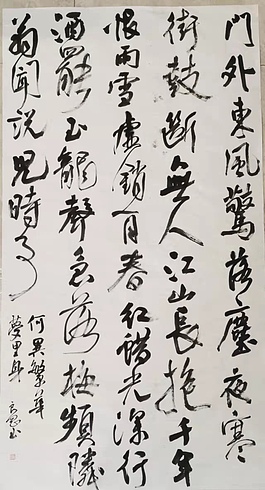 門外東風驚落塵夜寒
街鼓斷無人江山長抱千年
恨雨雪虛銷百春紅蠟光深行
酒罷玉龍聲急落梅頻隣
翁閒說兒時事
何異繁華
夢里身